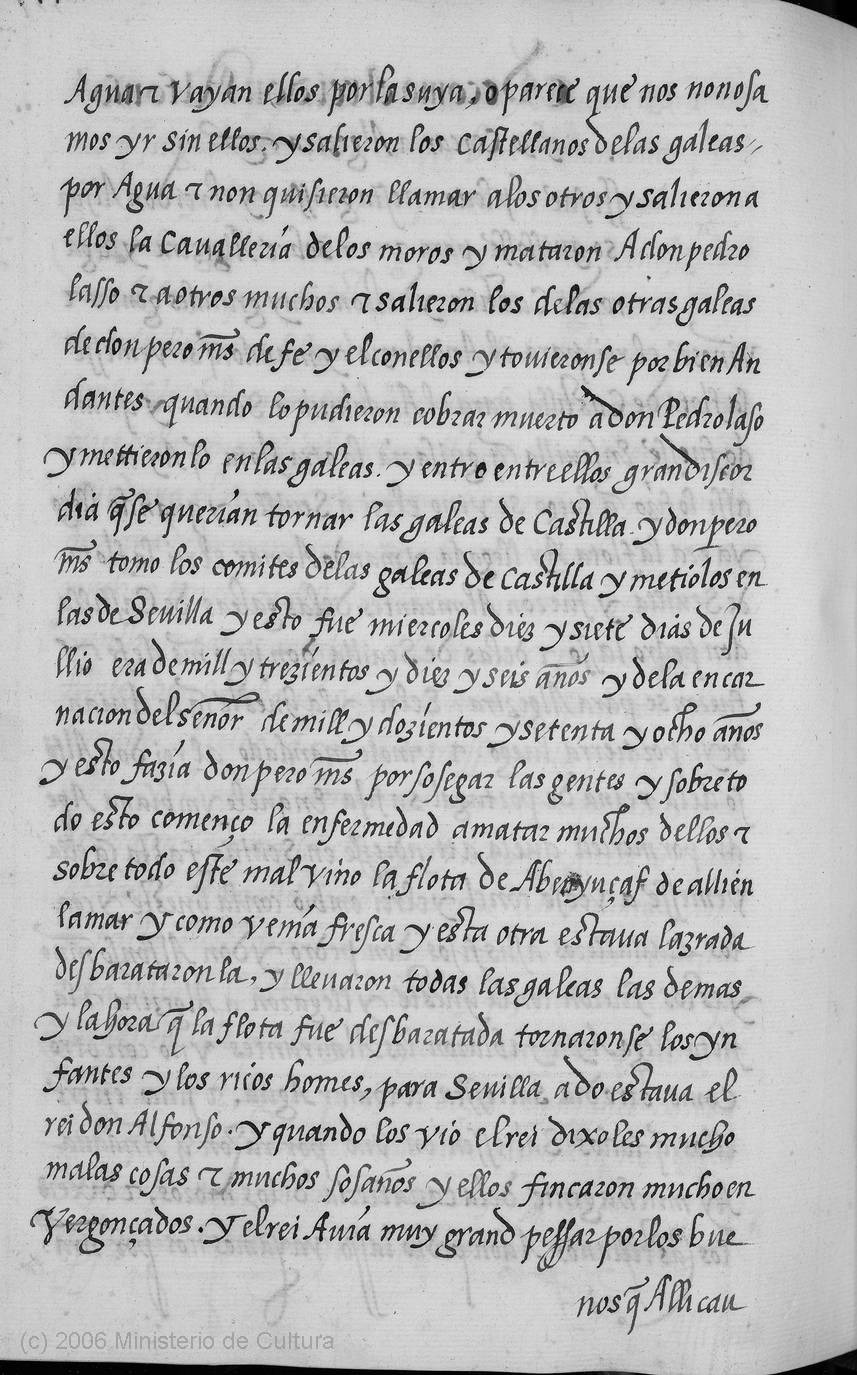 Agua ⁊ vayan ellos por la suya, o parece que nos non osa
mos yr sin ellos. y salieron los Castellanos delas galeas
por Agua ⁊ non quisieron llamar alos otros y salieron a
ellos la Cavallería delos moros y mataron A don pedro
lasso ⁊ a otros muchos ⁊ salieron los delas otras galeas
de don pero mr̃s de fe y el con ellos y tovieronse por bien An
dantes quando lo pudieron cobrar muerto a don Pedro laso
y mettieronlo en las galeas. y entro entre ellos gran discor
dia q̃ se querían tornar las galeas de Castilla. y don pero
mr̃s tomo los comites delas galeas de Castilla y metiólos en
las de Sevilla y esto fue miercoles diez y siete dias de Ju
llio era de mill y trezíentos y diez y seis años y dela encar
nacion del señor de mill y dozíentos y setenta y ocho años
y esto fazía don pero mr̃s por sosegar las gentes y sobre to
do esto començo la enfermedad a matar muchos dellos ⁊
sobre todo este mal vino la flota de Abenyuçaf de allien
la mar y como venía fresca y esta otra estava lazrada
desbarataronla, y llevaron todas las galeas las demas
y la hora q̃ la flota fue desbaratada tornaronse los yn
fantes y los ricos homes, para Sevilla a do estava el
rei don Alfonso. y quando los vio el rei dixoles mucho
malas cosas ⁊ muchos sosaños y ellos fincaron mucho en
Vergonçados. y el rei Avía muy grand pessar por los bue
nos q̃ Alli cau
(c) 2006 Ministerio de Cultura